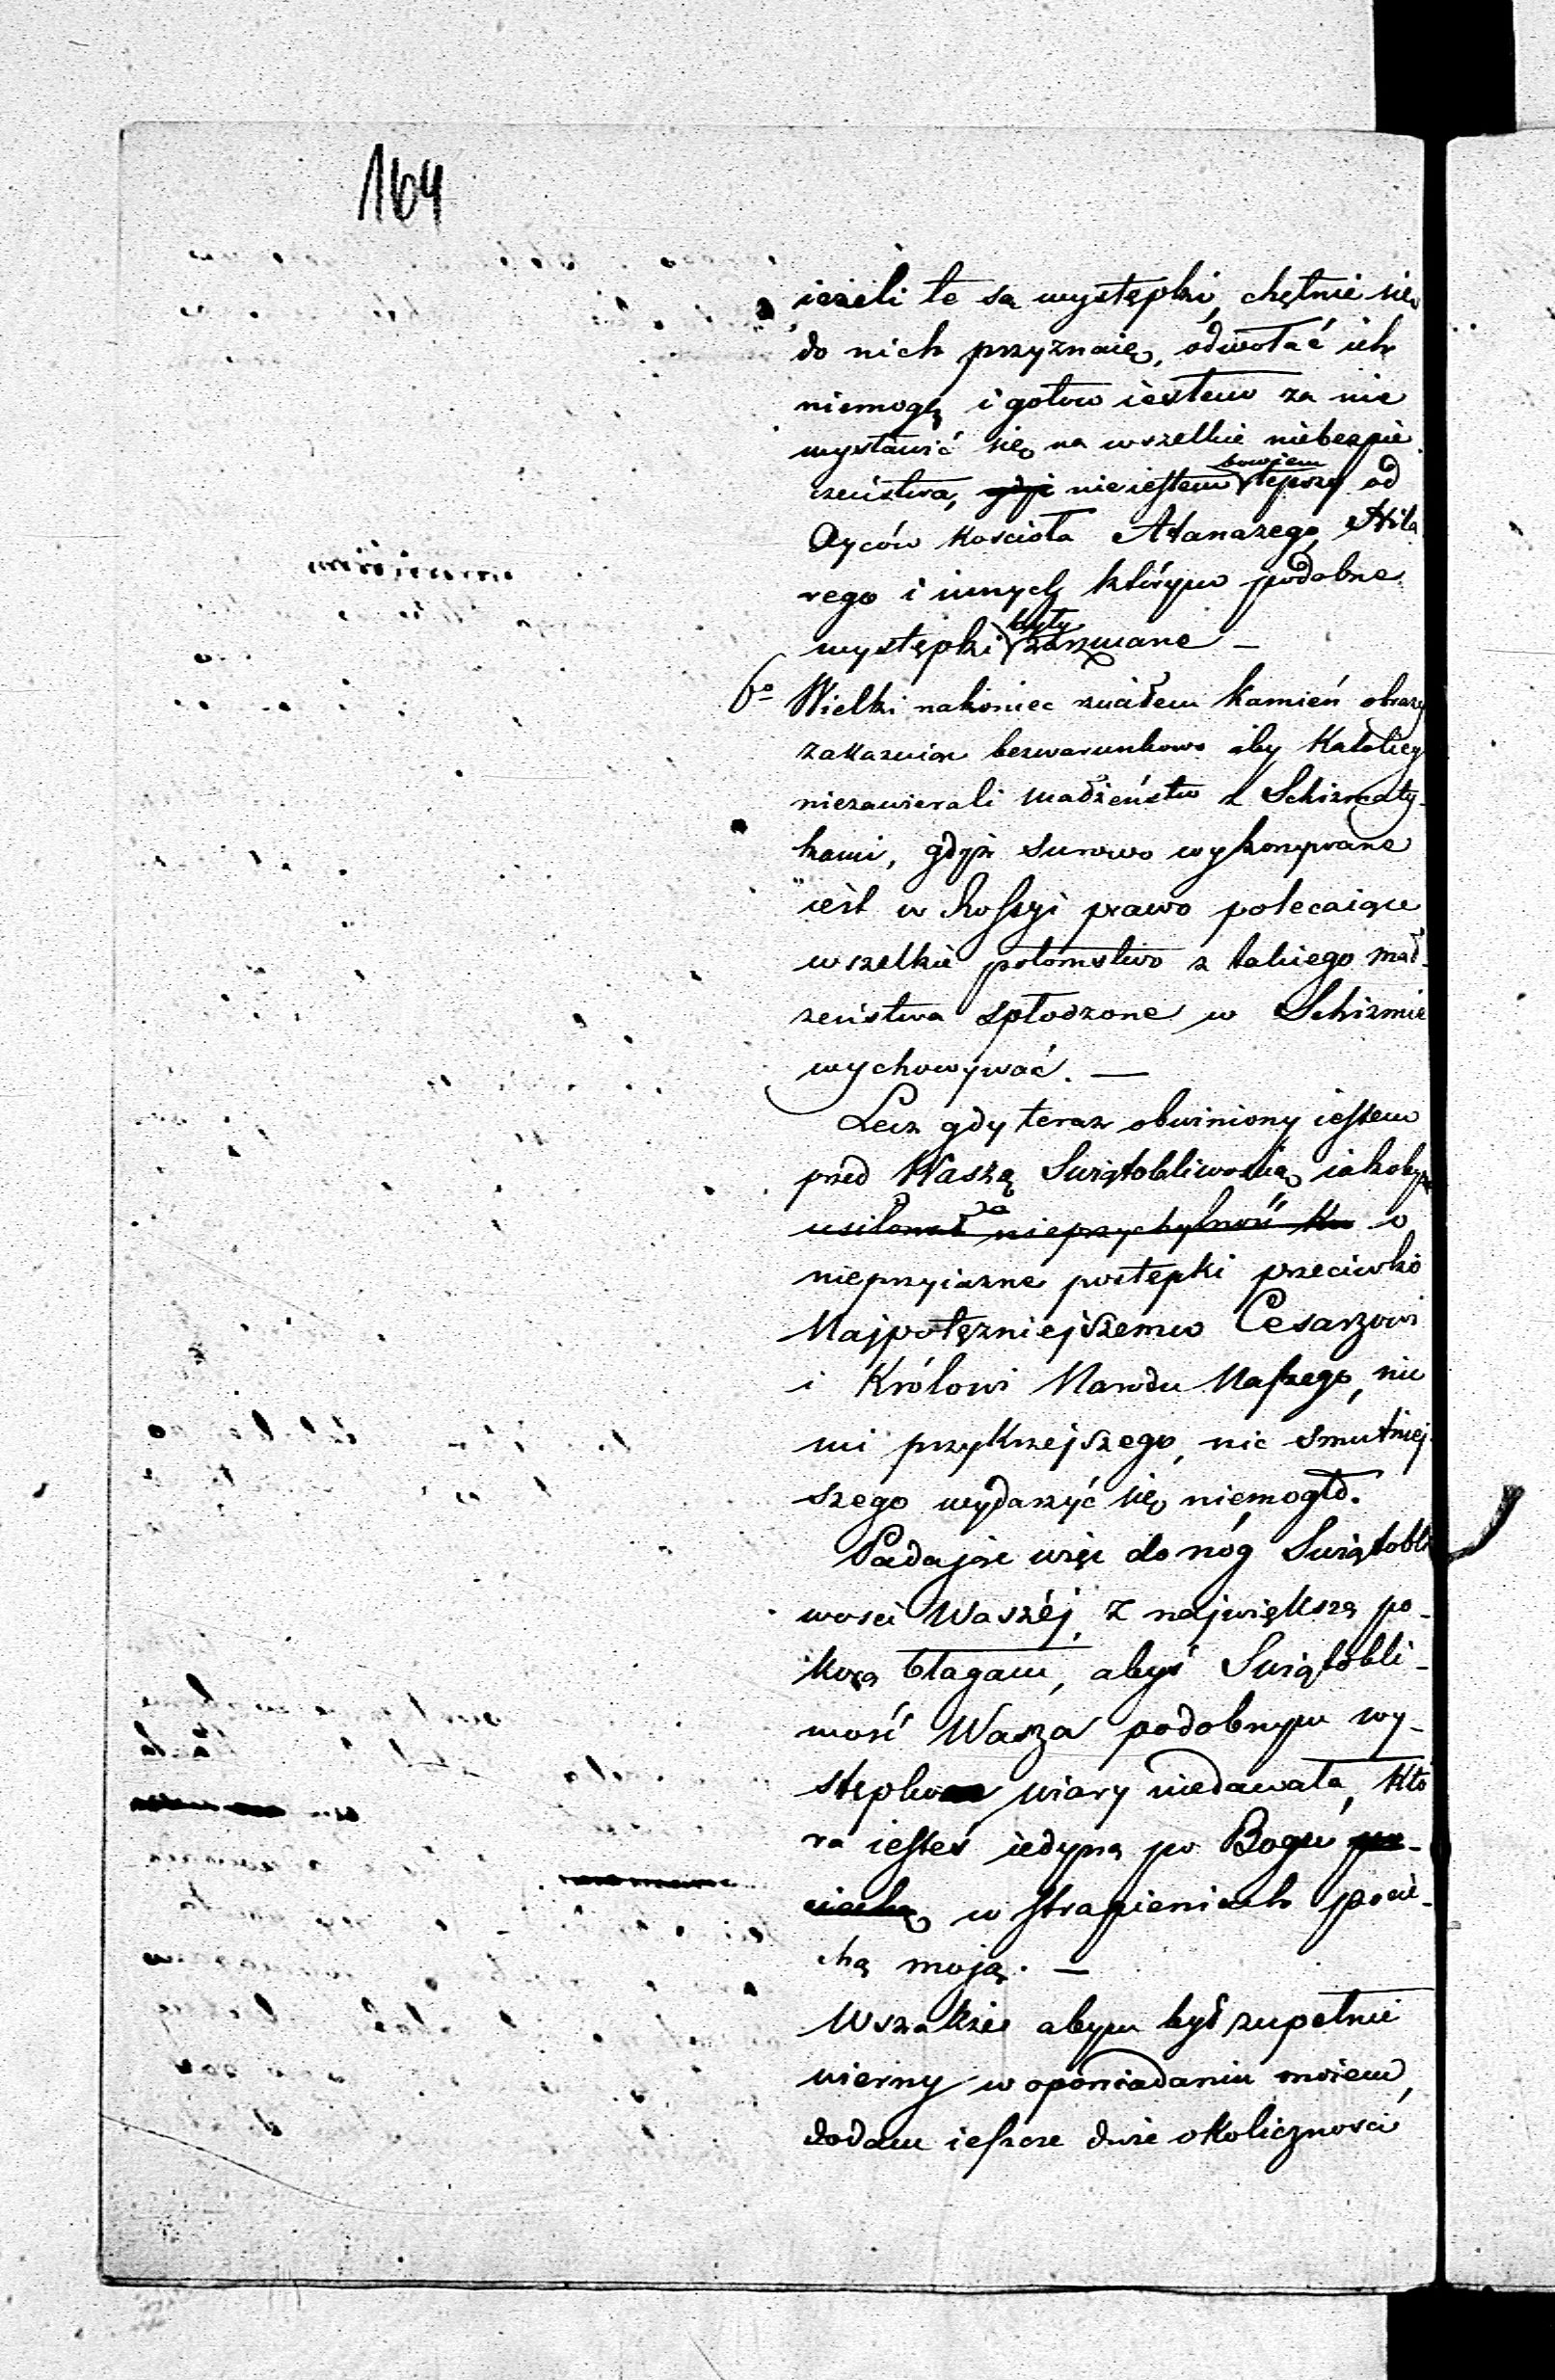 164
ieżeli te są występki, chętnie się
do nich przyznaię, odwołać ich
niemogę i gotow iestem za nie
wystawić się na wszelkie niebezpie
czeństwa, gdyż nieiestem bowiem lepszy od
Oyców Kościoła Atanazego, Hila
rego i innych którym podobne
występki były zarzucane —
6o Wielki nakoniec rzuciłem kamień obrazy
zakazuiąc bezwarunkowo aby Katolicy
niezawierali małżeństw z Schizmaty-
kami, gdyż surowo wykonywane
iest w Rossyi prawo polecaiące
wszelkie potomstwo z takiego mał-
żeństwa spłodzone w Schizmie
wychowywać. —
Lecz gdy teraz obwiniony iestem
przed Waszą Swiątobliwością iakoby
usiłował za nieprzychylność ku o
nieprzyiazne postępki przeciwko
Najpotężniejszemu Cesarzowi
i Królowi Narodu Naszego, nic
mi przykrzejszego, nic smutniej-
szego wydarzyć się niemogło.
Padając więc do nóg Swiątobli
wości Waszéj, z największą po-
korą błagam, abyś Swiątobli-
wość Wasza podobnym wy-
stępkom wiary niedawała, któ
ra iesteś iedyną po Bogu po-
ciechą w strapieniach pocie-
chą moją. —
Wszakże abym był zupełnie
wierny w opowiadaniu moiem,
dodam ieszcze dwie okoliczności